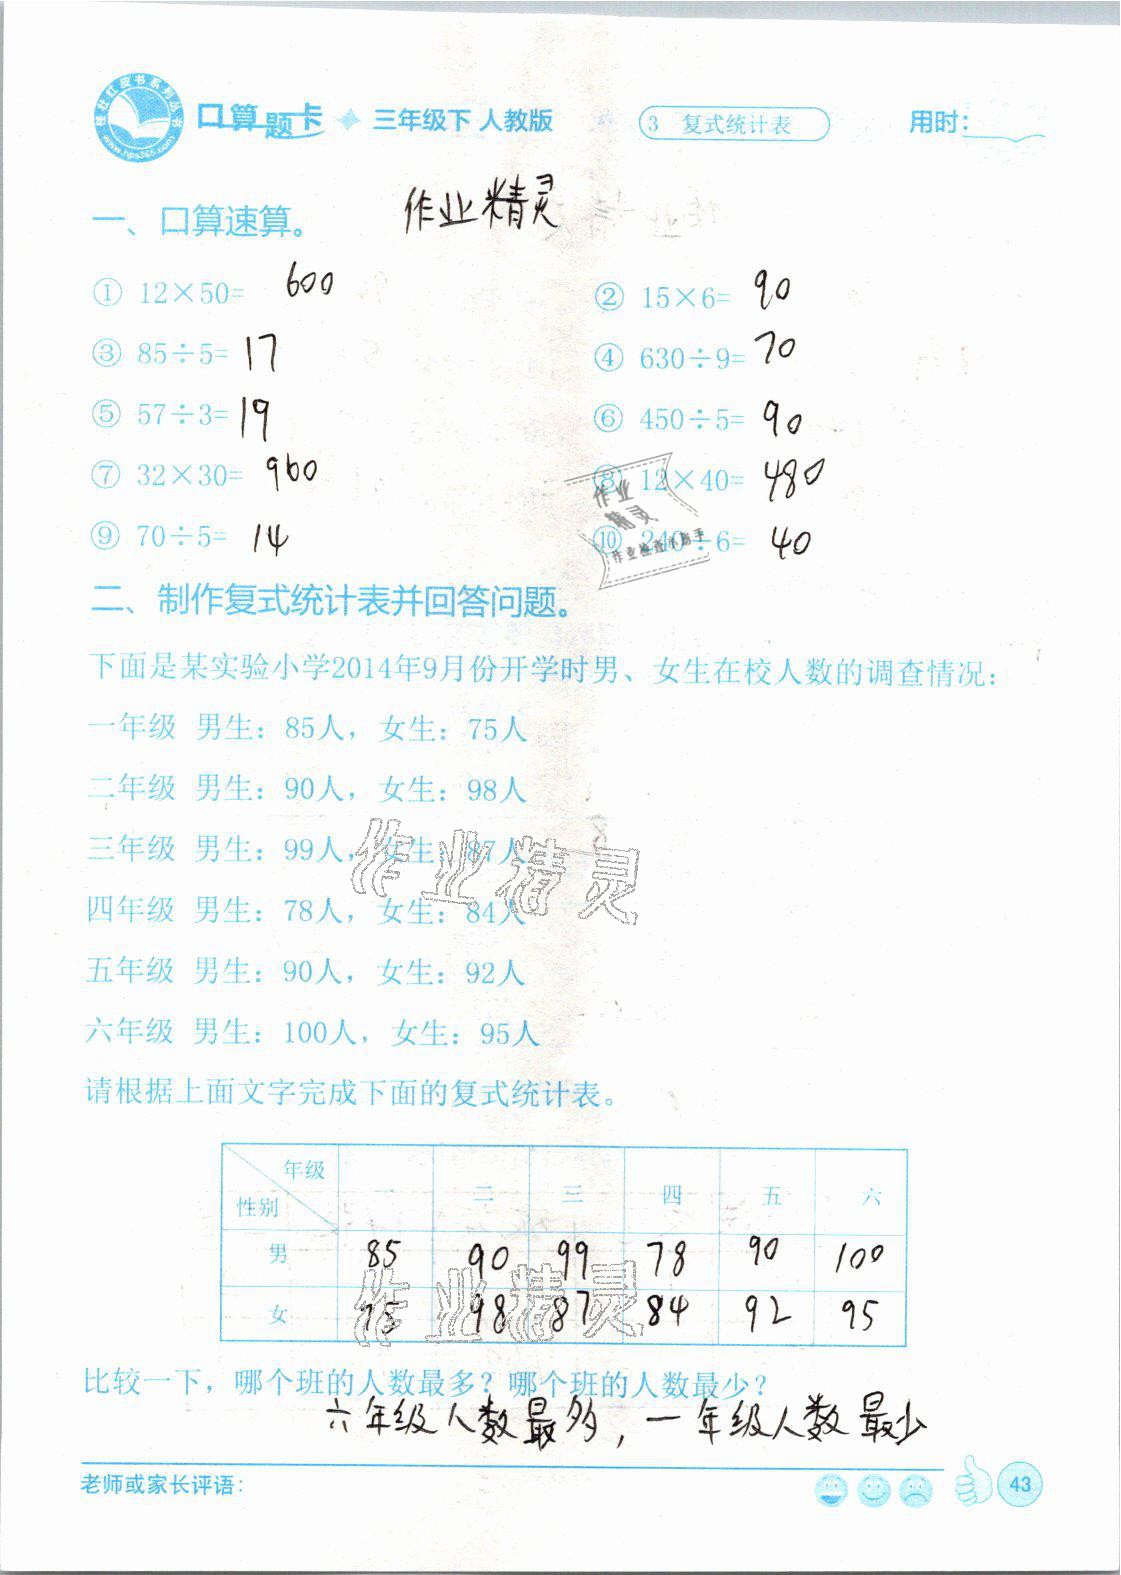 桂壮红皮书系列丛书
www.hps365.com
口算题卡 三年级下 人教版 3 复式统计表 用时：
一、口算速算。 作业精灵
① 12×50= 600 ② 15×6= 90
③ 85÷5= 17 ④ 630÷9= 70
⑤ 57÷3= 19 ⑥ 450÷5= 90
⑦ 32×30= 960 ⑧ 12×40= 480
⑨ 70÷5= 14 ⑩ 240÷6= 40
作业
精灵
作业检查小助手
二、制作复式统计表并回答问题。
下面是某实验小学2014年9月份开学时男、女生在校人数的调查情况：
一年级 男生：85人，女生：75人
二年级 男生：90人，女生：98人
三年级 男生：99人，女生：87人
作业精灵
四年级 男生：78人，女生：84人
五年级 男生：90人，女生：92人
六年级 男生：100人，女生：95人
请根据上面文字完成下面的复式统计表。
年级 一 二 三 四 五 六
性别
男 85 90 99 78 90 100
作业精灵
女 75 98 87 84 92 95
比较一下，哪个班的人数最多？哪个班的人数最少？
六年级人数最多，一年级人数最少
老师或家长评语： 43